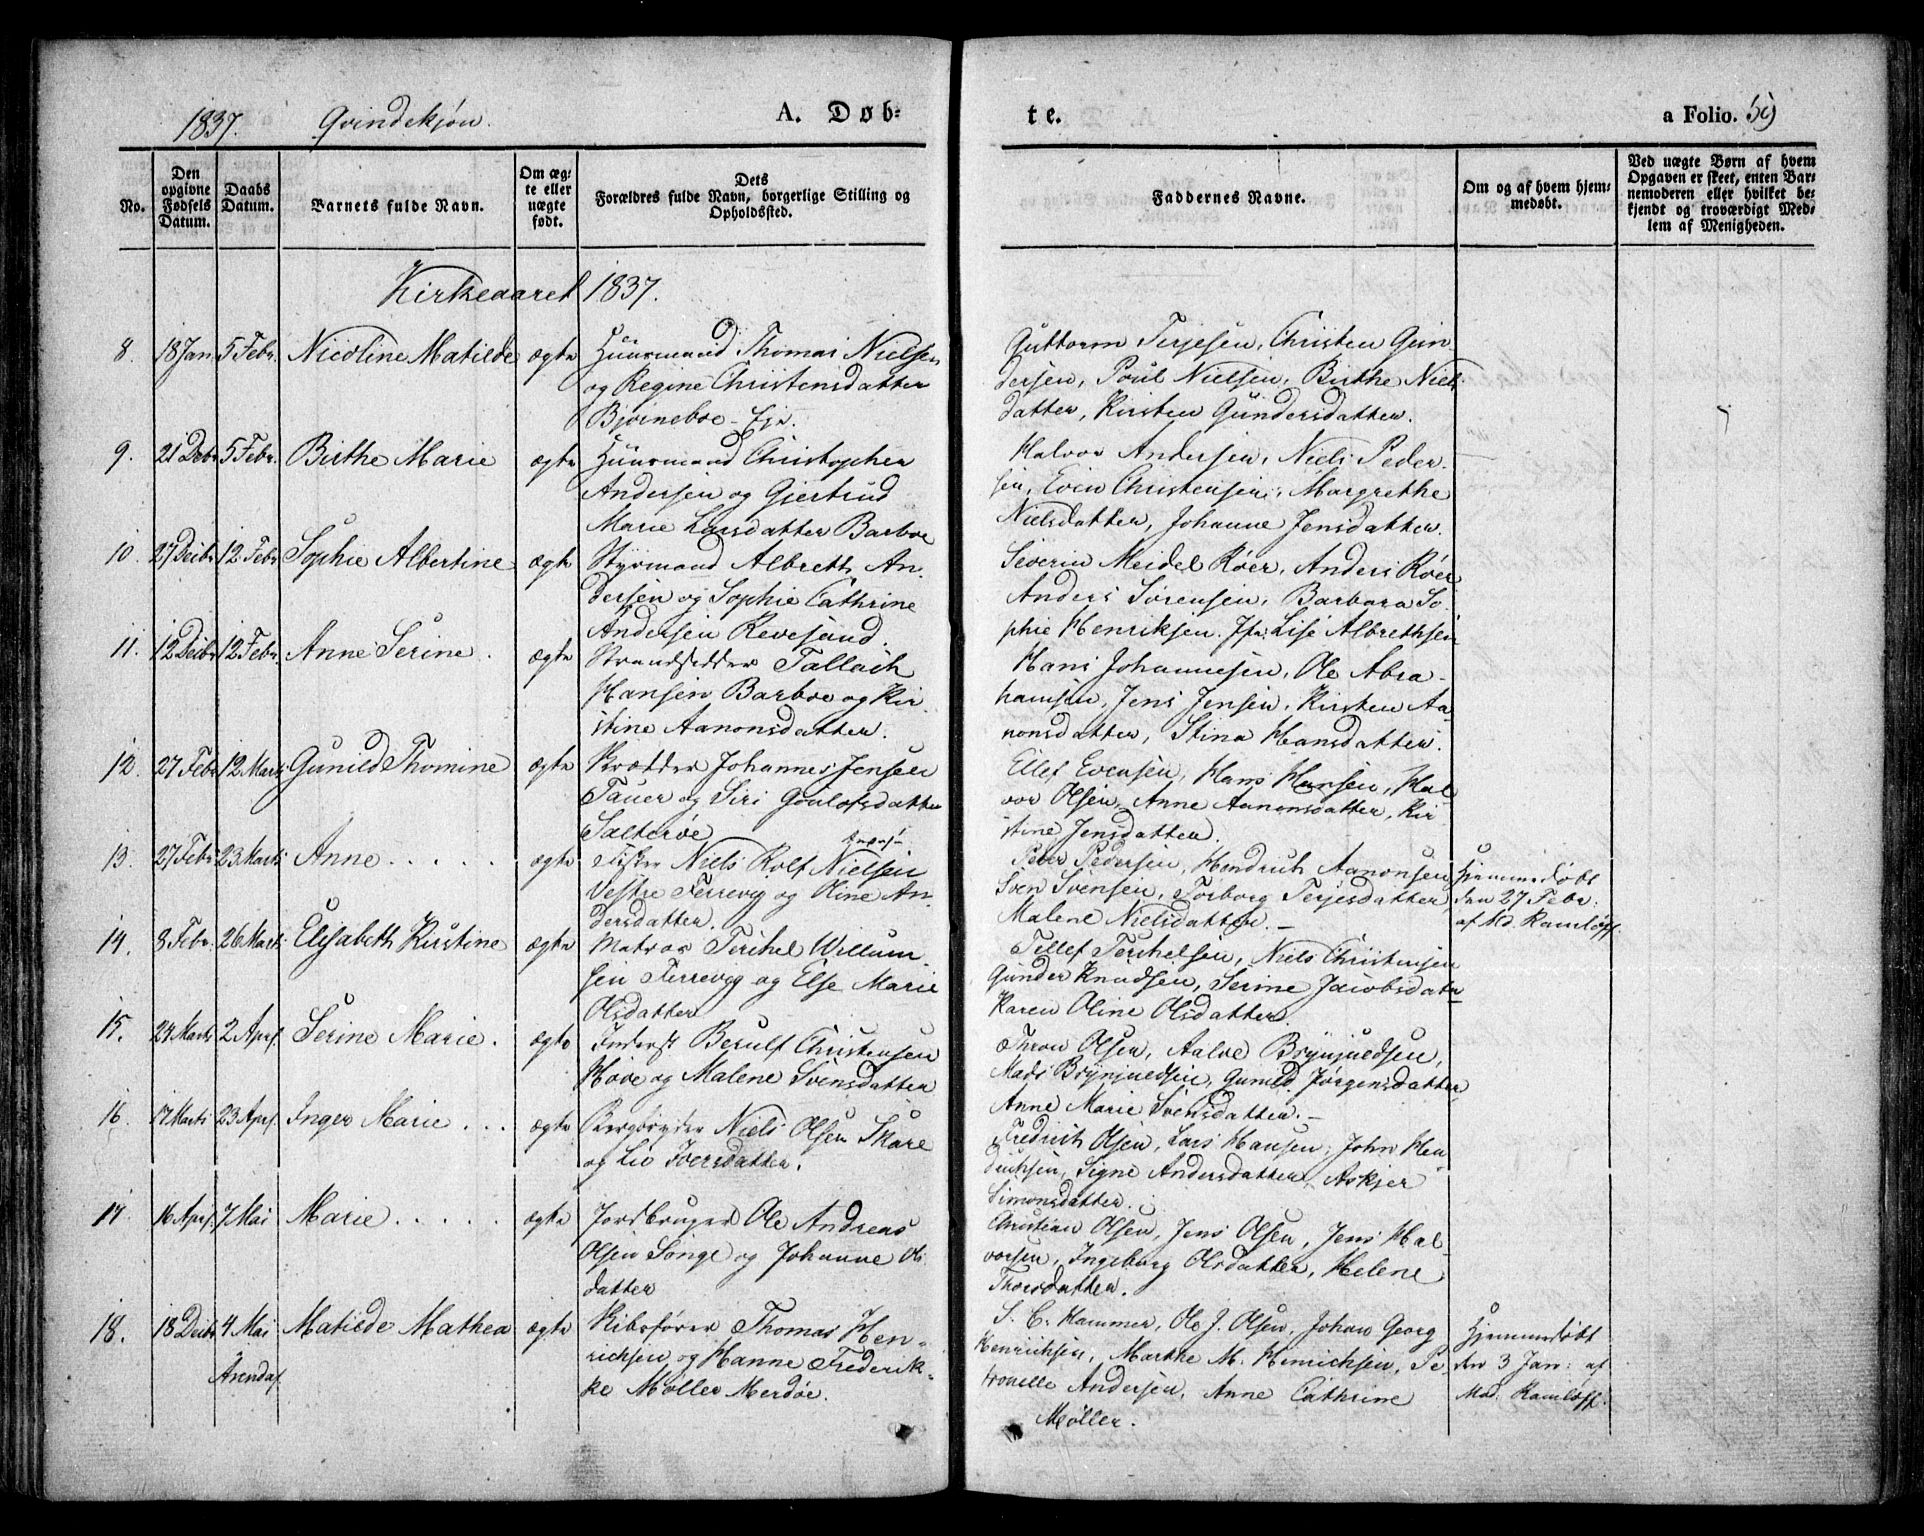 1837. Qvindekjøn. A. Døb-
te. a Folio. 59
No.
Den opgivne Fødsels Datum.
Daabs Datum.
Barnets fulde Navn.
Om ægte eller uægte født.
Dets Forældres fulde Navn, borgerlige Stilling og Opholdssted.
Faddernes Navne.
Om og af hvem hjemmedøbt.
Ved uægte Børn af hvem
Opgaven er skeet, enten Bar-
nemoderen eller hvilket be-
kjendt og troværdigt Med-
lem af Menigheden.
Kirkeaaret 1837.
8. 18 Jan. 5 Febr. Nicoline Matilde ægte Huusmand Thomas Nielsen
og Regine Christensdatter
Bjorneboe - Eje.
Guttorm Terjesen, Christen Gun-
dersen, Poul Nielsen, Birthe Niels
datter, Kirsten Gundersdatter.
9. 21 Decbr 5 Febr. Birthe Marie ægte Huusmand Christopher
Andersen og Gjertrud
Marie Larsdatter Barboe
Halvor Andersen, Niels Peder-
sen, Even Christensen, Margrethe
Nielsdatter, Johanne Jensdatter.
10. 27 Decbr 12 Febr Sophie Albertine ægte Styrmand Albreth An-
dersen og Sophie Cathrine
Andersen Revesand.
Severin Meidel Röer, Anders Röer
Anders Sörensen, Barbara So-
phie Henriksen, Jfr. Lise Albrethsen
11. 12 Decbr 12 Febr. Anne Serine. ægte Strandsidder Tallach
Hansen Barboe og Kir-
stine Aanonsdatter.
Hans Johannesen, Ole Abra-
hamsen, Jens Jensen, Kirsten Aa-
nonsdatter, Stina Hansdatter.
12. 27 Febr 12 Marts Gunild Thomine ægte Skrædder Johannes Jensen
Tauer og Siri Goulofsdatter
Salteröe
Ellef Evensen, Hans Hansen, Hal-
vor Olsen, Anne Aanonsdatter, Kir-
stine Jensdatter.
13. 27 Febr 23 Marts Anne . . . . . ægte Fisker Niels Rolf Nielsen
Vestre Terrevig og Oline An-
dersdatter.
Peder Pedersen, Hendrich Aanonsen
Sven Svensen, Torborg Terjesdatter,
Malene Nielsdatter. -
Hjemmedöbt
den 27 Febr.
af Md. Ramlöff.
14. 3 Febr. 26 Marts Elisabeth Kirstine ægte Matros Terchel Willum-
sen Terrevig og Else Marie
Olsdatter
Tellef Terchelsen, Niels Christensen
Gunder Knudsen, Serine Jacobsdatter
Karen Oline Olsdatter.
15. 24 Marts 2 Apr. Serine Marie. ægte Inderst Berulf Christensen
Hove og Malene Svensdatter
Thron Olsen, Aalve Brynjuedsen,
Mads Brynjuedsen, Gunild Jörgensdatter
Anne Marie Svensdatter. -
16. 17 Marts 23 Apr. Inger Marie . . . ægte Bergbryder Niels Olsen Skare
og Liv Iversdatter.
Fredrich Olsen, Lars Hansen, John Hen-
drichsen, Signe Andersdatter, Askjer
Simonsdatter.
17. 16 Apr. 7 Mai Marie . . . . . ægte Jordbruger Ole Andreas
Olsen Songe og Johanne Ols
datter
Christian Olsen, Jens Olsen, Jens Hal-
vorsen, Ingeborg Olsdatter, Helene
Thorsdatter.
18. 18 Decbr 4 Mai Matilde Mathea ægte Skibsförer Thomas Hen-
Arendal
richsen og Hanne Frederik-
ke Møller Merdöe.
S. C. Hammer, Ole J. Olsen, Johan Georg
Henrichsen, Marthe M. Henrichsen, Pe-
tronelle Andersen, Anne Cathrine
Møller.
Hjemmedöbt
den 3 Jan: af
Mad. Ramlöff.